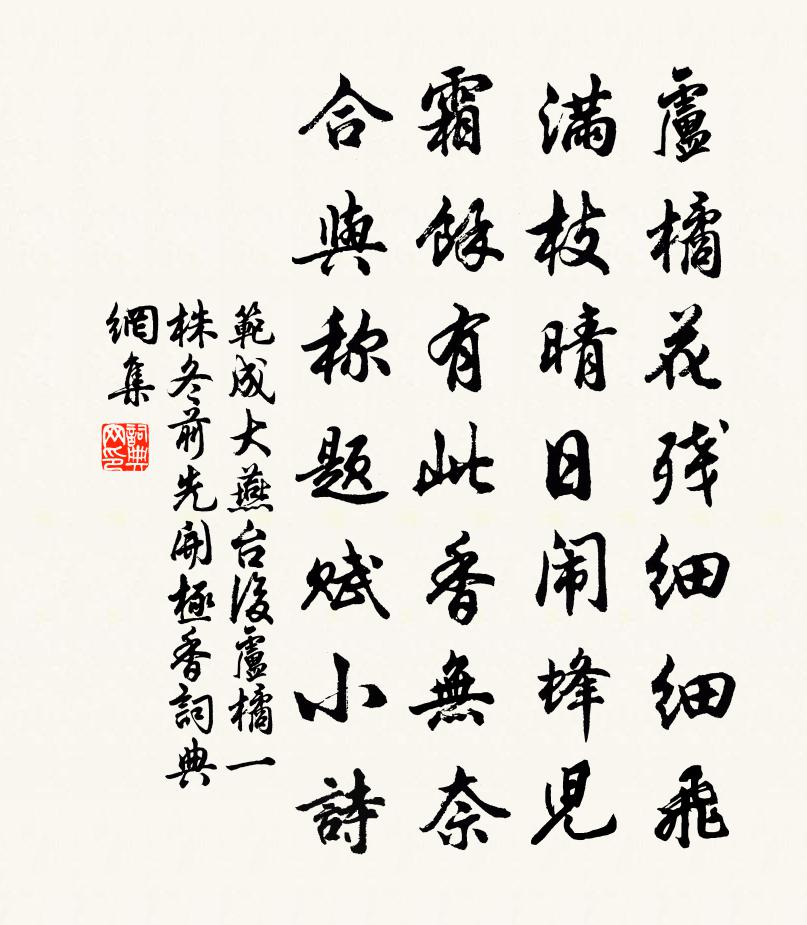 盧橘花残細細飛
滿枝晴日闹蜂児
霜餘有此香無奈
合與称题赋小詩
範成大燕台後盧橘一
株冬前先開極香詞典
網集
詞典
网印